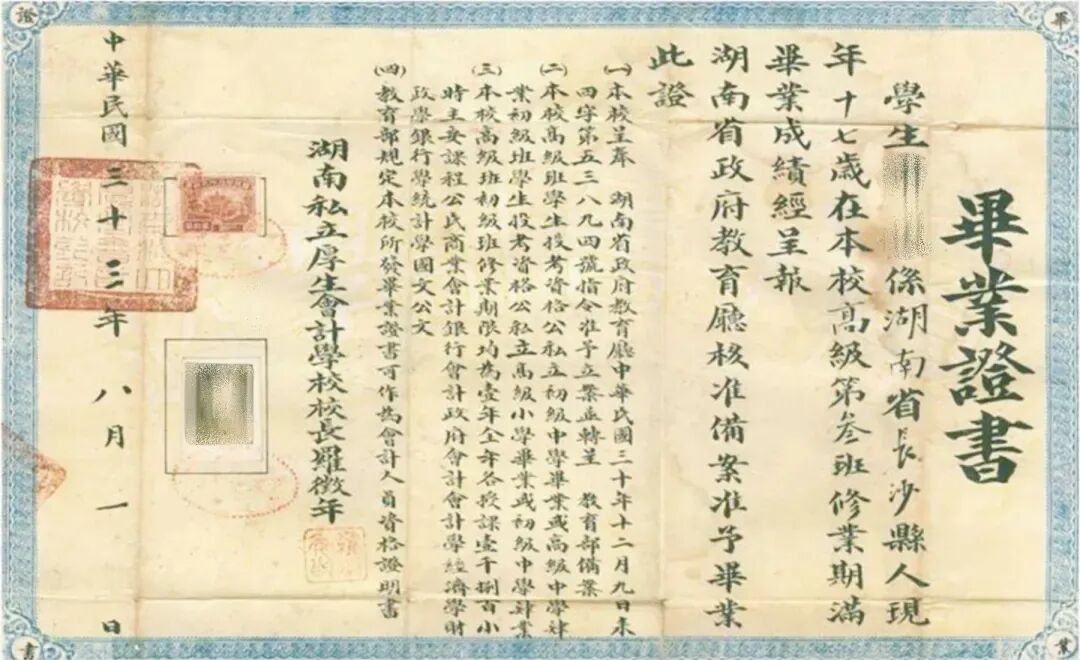 畢業證書
學生
係湖南省長沙縣人現
年十七歲在本校高級第叁班修業期滿
畢業成績經呈報
湖南省政府教育廳核准備案准予畢業
此證
㈠本校呈奉 湖南省政府教育廳中華民國三十年十二月九日未
四字第五三八九四號指令准予立案並轉呈 教育部備案
㈡本校高級班學生投考資格公私立初級中學畢業或高級中學肄
業初級班學生投考資格公私立高級小學畢業或初級中學肄業
㈢本校高級班初級班修業期限均為壹年全年各授課壹千捌百小
時主要課程公民商業會計銀行會計政府會計會計學經濟學財
政學銀行學統計學國文公文
㈣教育部規定本校所發畢業證書可作為會計人員資格證明書
湖南私立厚生會計學校校長羅徵年
中華民國三十三年八月一日
證
畢
書
業